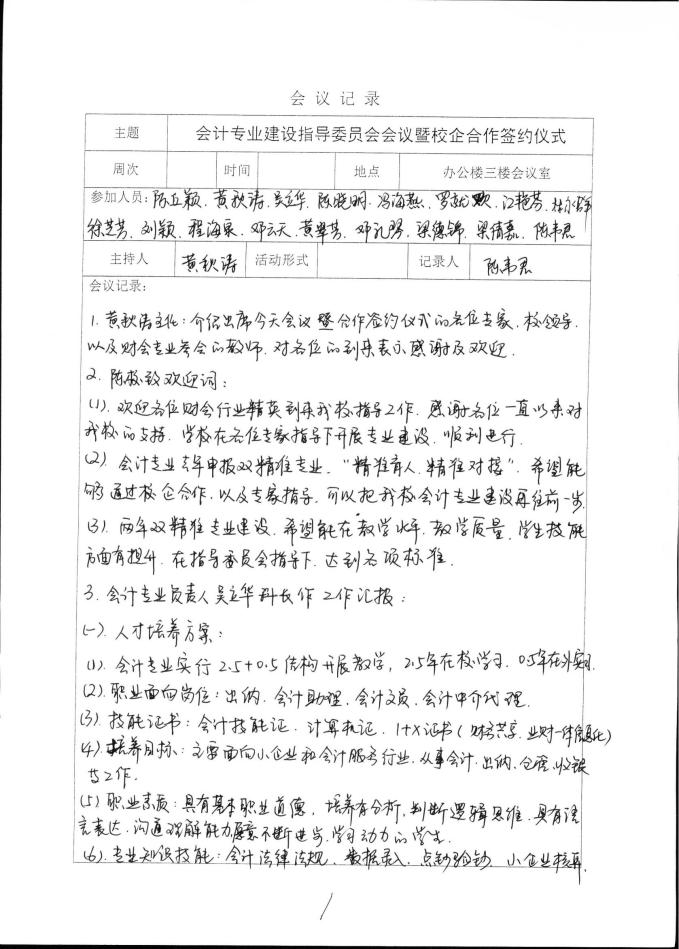 会议记录
主题 会计专业建设指导委员会会议暨校企合作签约仪式
周次 时间 地点 办公楼三楼会议室
参加人员：陈立颖、黄秋涛、吴立华、陈晓明、冯海燕、罗 江艳芬、
徐芝芳、刘颖、程海泉、邓云天、黄翠芳、邓礼明、梁德锦、梁倩嘉、陈韦君
主持人 黄秋涛 活动形式 记录人 陈韦君
会议记录：
1. 黄秋涛主任：介绍出席今天会议暨合作签约仪式的各位专家、校领导，
以及财会专业参会的教师，对各位的到来表示感谢及欢迎。
2. 陈校致欢迎词：
(1). 欢迎各位财会行业精英到来我校指导工作，感谢各位一直以来对
我校的支持，学校在各位专家指导下开展专业建设，顺利进行。
(2) 会计专业去年申报双精准专业，“精准育人、精准对接”，希望能
够通过校企合作，以及专家指导，可以把我校会计专业建设再往前一步
(3). 两年双精准专业建设，希望能在教学水平、教学质量、学生技能
方面有提升，在指导委员会指导下，达到各项标准。
3. 会计专业负责人吴立华科长作工作汇报：
(一). 人才培养方案：
(1). 会计专业实行2.5+0.5结构开展教学，2.5年在校学习，0.5年在外实习.
(2). 职业面向岗位：出纳、会计助理、会计文员、会计中介代理.
(3). 技能证书：会计技能证、计算机证、1+X证书（财务共享、业财一体信息化）
(4). 培养目标：主要面向小企业和会计服务行业，从事会计、出纳、仓管、收银
等工作.
(5) 职业素质：具有基本职业道德，培养有分析、判断逻辑思维，具有语
言表达、沟通理解能力，愿意不断进步，学习动力的学生.
(6). 专业知识技能：会计法律法规、数据录入、点钞验钞、小企业核算，
1